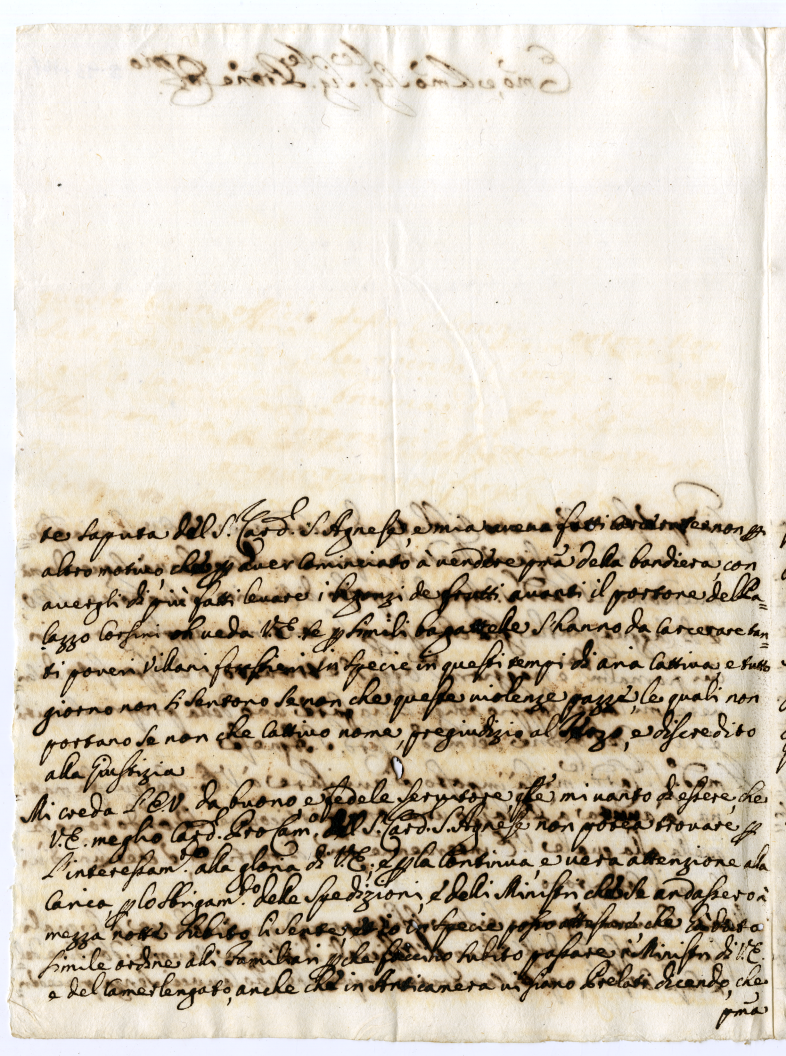 te saputa del S.r Card. S. Agnese, e mia aveva fatti carcerare non p
altro motivo, che p aver cominciato à vendere pma della bandiera, con
avergli di più fatti levare i bigonzi de frutti avanti il portone della Pa=
lazzo Corsini oh veda V.E. se p simili bagattelle s'hanno da carcerare tan=
ti poveri Villani forestieri in specie in questi tempi di aria cattiva, e tutto
giorno non si sentono se non che queste violenze pazze, le quali non
portano se non che cattivo nome, pregiudizio al, e discredito
alla Giustizia
Mi creda l'E.V. da buono e fedele servitore che mi vanto di essere, che
V.E. meglio Card. Pro Cam.o del S. Card. S. Agnese non potea trovare p
l'interessam.to alla gloria di V.E., e p la continua, e vera attenzione alla
Carica, p lo sbrigam.to delle spedizioni, e delli Ministri che se andassero à
mezza notte subito li sente, et io in specie posso attestare, che hà dato
simile ordine alli Familiari p che faccino subito passare i Ministri di V.E.
e del Camerlengato, anche che in Anticamera vi siano Prelati dicendo, che
pma